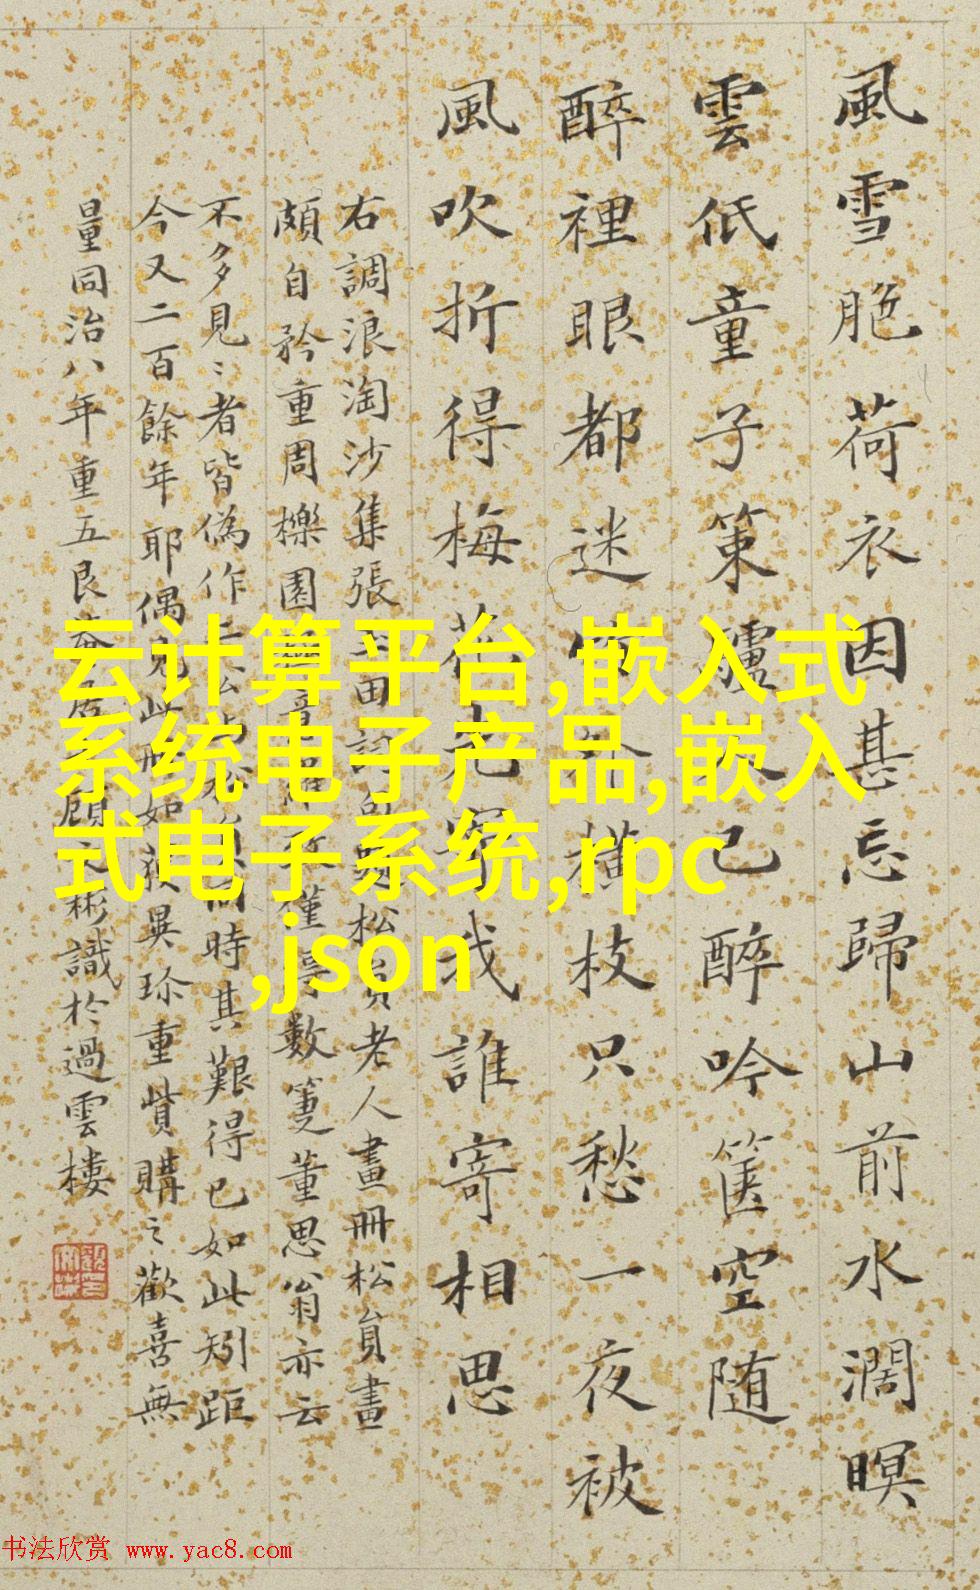 風雪脃荷衣因甚忘歸山前水濶暝
雲低童子策驢人已醉吟篋空随
醉裡眼都迷 横枝只愁一夜被
風吹折得梅花 我誰寄相思
右調浪淘沙集張玉田詞 松員老人畫冊松員畫
頗自矜重周櫟園 數箋董思翁亦云
不多見〻者皆偽作 時其艱得已如此矧距
今又二百餘年耶偶見此冊如獲異珍重貲購之歡喜無
量同治八年重五艮菴 顧文彬識於過雲樓
云计算平台,嵌入式
系统电子产品,嵌入
式电子系统,rpc
,json
书法欣赏 www.yac8.com